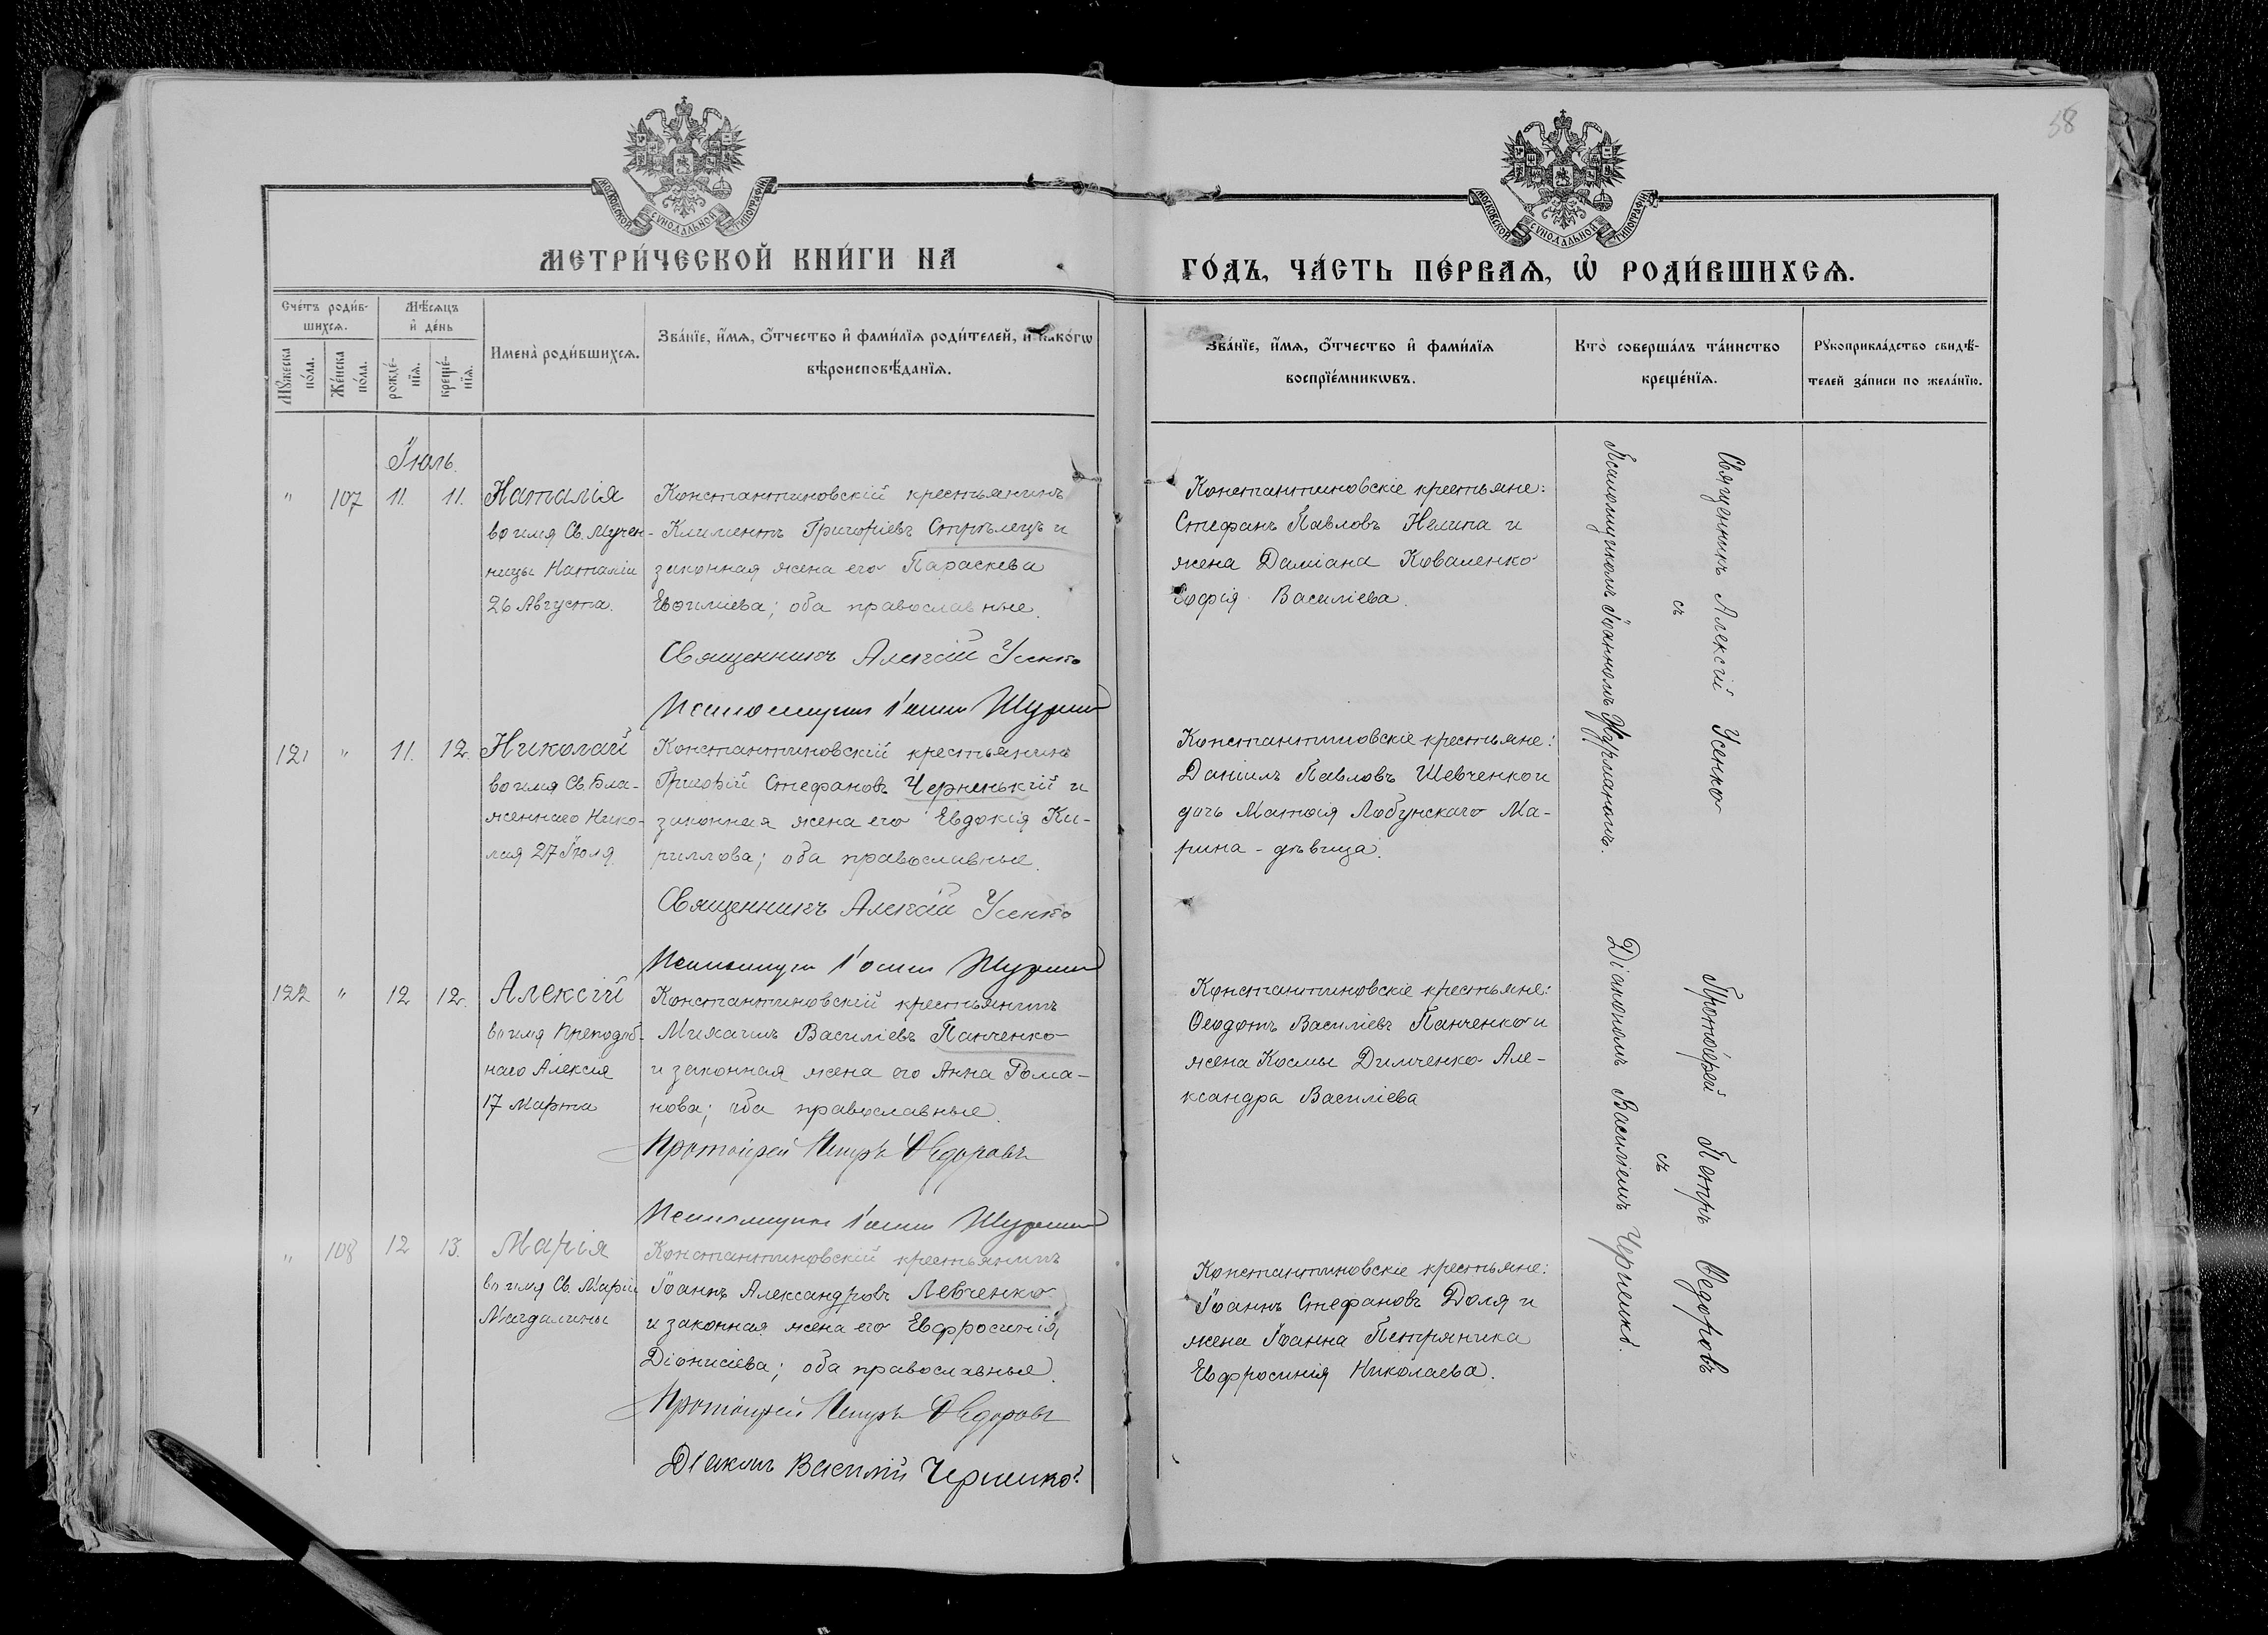 58
МОСКОВСКОЙ СѴНОДАЛЬНОЙ ТИПОГРАФІИ
МОСКОВСКОЙ СѴНОДАЛЬНОЙ ТИПОГРАФІИ
МЕТРИ́ЧЕСКОЙ КНИ́ГИ НА
ГО́ДЪ, ЧА́СТЬ ПЕ́РВАѦ, Ѽ РОДИ́ВШИХСѦ.
Сче́тъ роди́в-
шихсѧ.
Мꙋ́жеска
по́ла.
Же́нска
по́ла.
Мѣ́сѧцъ
и҆ де́нь
рожде́-
нїѧ.
креще́-
нїѧ.
Имена̀ роди́вшихсѧ.
Зва́нїе, и҆́мѧ, ѻ҆́тчество и҆ фами́лїѧ роди́телей, и҆ како́гѡ
вѣроисповѣ́данїѧ.
Зва́нїе, и҆́мѧ, ѻ҆́тчество и҆ фами́лїѧ
воспрїе́мникѡвъ.
Кто̀ соверша́лъ та́инство
креще́нїѧ.
Рꙋкоприкла́дство свидѣ́-
телей за́писи по жела́нїю.
Іюль.
" 107 11. 11. Наталія
во имя Св. Мучен-
ницы Наталіи
26 Августа.
Константиновскій крестьянинъ
Климентъ Григоріевъ Стрѣлецъ и
законная жена его Параскева
Евфиміева; оба православные.
Священникъ Алексій Усенко
Псаломщикъ Іоаннъ
Константиновскіе крестьяне:
Стефанъ Павловъ Нелипа и
жена Даміана Коваленко
Софія Василіева.
Священникъ Алексій Усенко
съ
Псаломщикомъ Іоанномъ
121 " 11. 12. Николай
во имя Св. Бла-
женнаго Нико-
лая 27 Іюля.
Константиновскій крестьянинъ
Григорій Стефановъ Черненькій и
законная жена его Евдокія Ки-
риллова; оба православные.
Священникъ Алексій Усенко
Псаломщикъ Іоаннъ
Константиновскіе крестьяне:
Даніилъ Павловъ Шевченко и
дочь Матѳія Лобунскаго Ма-
рина - дѣвица.
122 " 12 12. Алексій
во имя Преподоб-
наго Алексія
17 Марта
Константиновскій крестьянинъ
Михаилъ Василіевъ Панченко
и законная жена его Анна Рома-
нова; оба православные.
Протоіерей Петръ Ѳедоровъ
Псаломщикъ Іоаннъ
Константиновскіе крестьяне:
Ѳеодотъ Василіевъ Панченко и
жена Космы Димченко Але-
ксандра Василіева
Протоіерей Петръ Ѳедоровъ
съ
Діакономъ Василіемъ
" 108 12 13. Марія
во имя Св. Маріи
Магдалины
Константиновскій крестьянинъ
Іоаннъ Александровъ Левченко
и законная жена его Евфросинія
Діонисіева; оба православные.
Протоіерей Петръ Ѳедоровъ
Діаконъ Василій
Константиновскіе крестьяне:
Іоаннъ Стефановъ Доля и
жена Іоанна Петряника
Евфросинія Николаева.